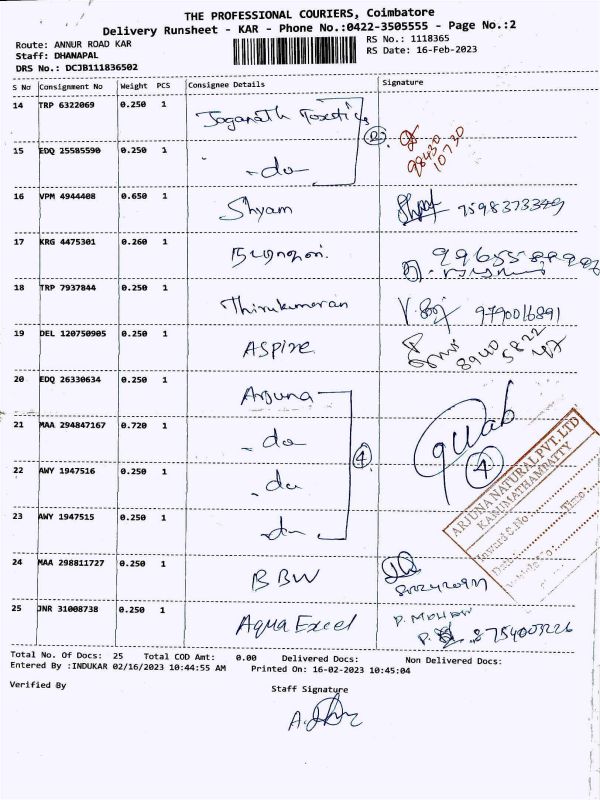 THE PROFESSIONAL COURIERS, Coimbatore
Delivery Runsheet - KAR - Phone No.:0422-3505555 - Page No.:2
Route: ANNUR ROAD KAR
RS No.: 1118365
Staff: DHANAPAL
RS Date: 16-Feb-2023
DRS No.: DCJB111836502
S No Consignment No Weight PCS Consignee Details Signature
14 TRP 6322069 0.250 1 Jaganath
15 EDQ 25585590 0.250 1 -do- 2 98430 10730
16 VPM 4944408 0.650 1 Shyam 7598373349
17 KRG 4475301 0.260 1
18 TRP 7937844 0.250 1 Thirukumaran 9790016891
19 DEL 120750905 0.250 1 ASPIRE 8940 5822 47
20 EDQ 26330634 0.250 1 Arjuna
21 MAA 294847167 0.720 1 -do
22 AWY 1947516 0.250 1 -do 4
23 AWY 1947515 0.250 1 -do
ARJUNA NATURAL PVT. LTD
KANUMATHAMPATTY
Inward S.No
Date: Time:
Vehicle No:
24 MAA 298811727 0.250 1 BBW
25 JNR 31008738 0.250 1 Aqua Excel P. MOHAN 8754003226
Total No. Of Docs: 25 Total COD Amt: 0.00 Delivered Docs: Non Delivered Docs:
Entered By :INDUKAR 02/16/2023 10:44:55 AM Printed On: 16-02-2023 10:45:04
Verified By
Staff Signature